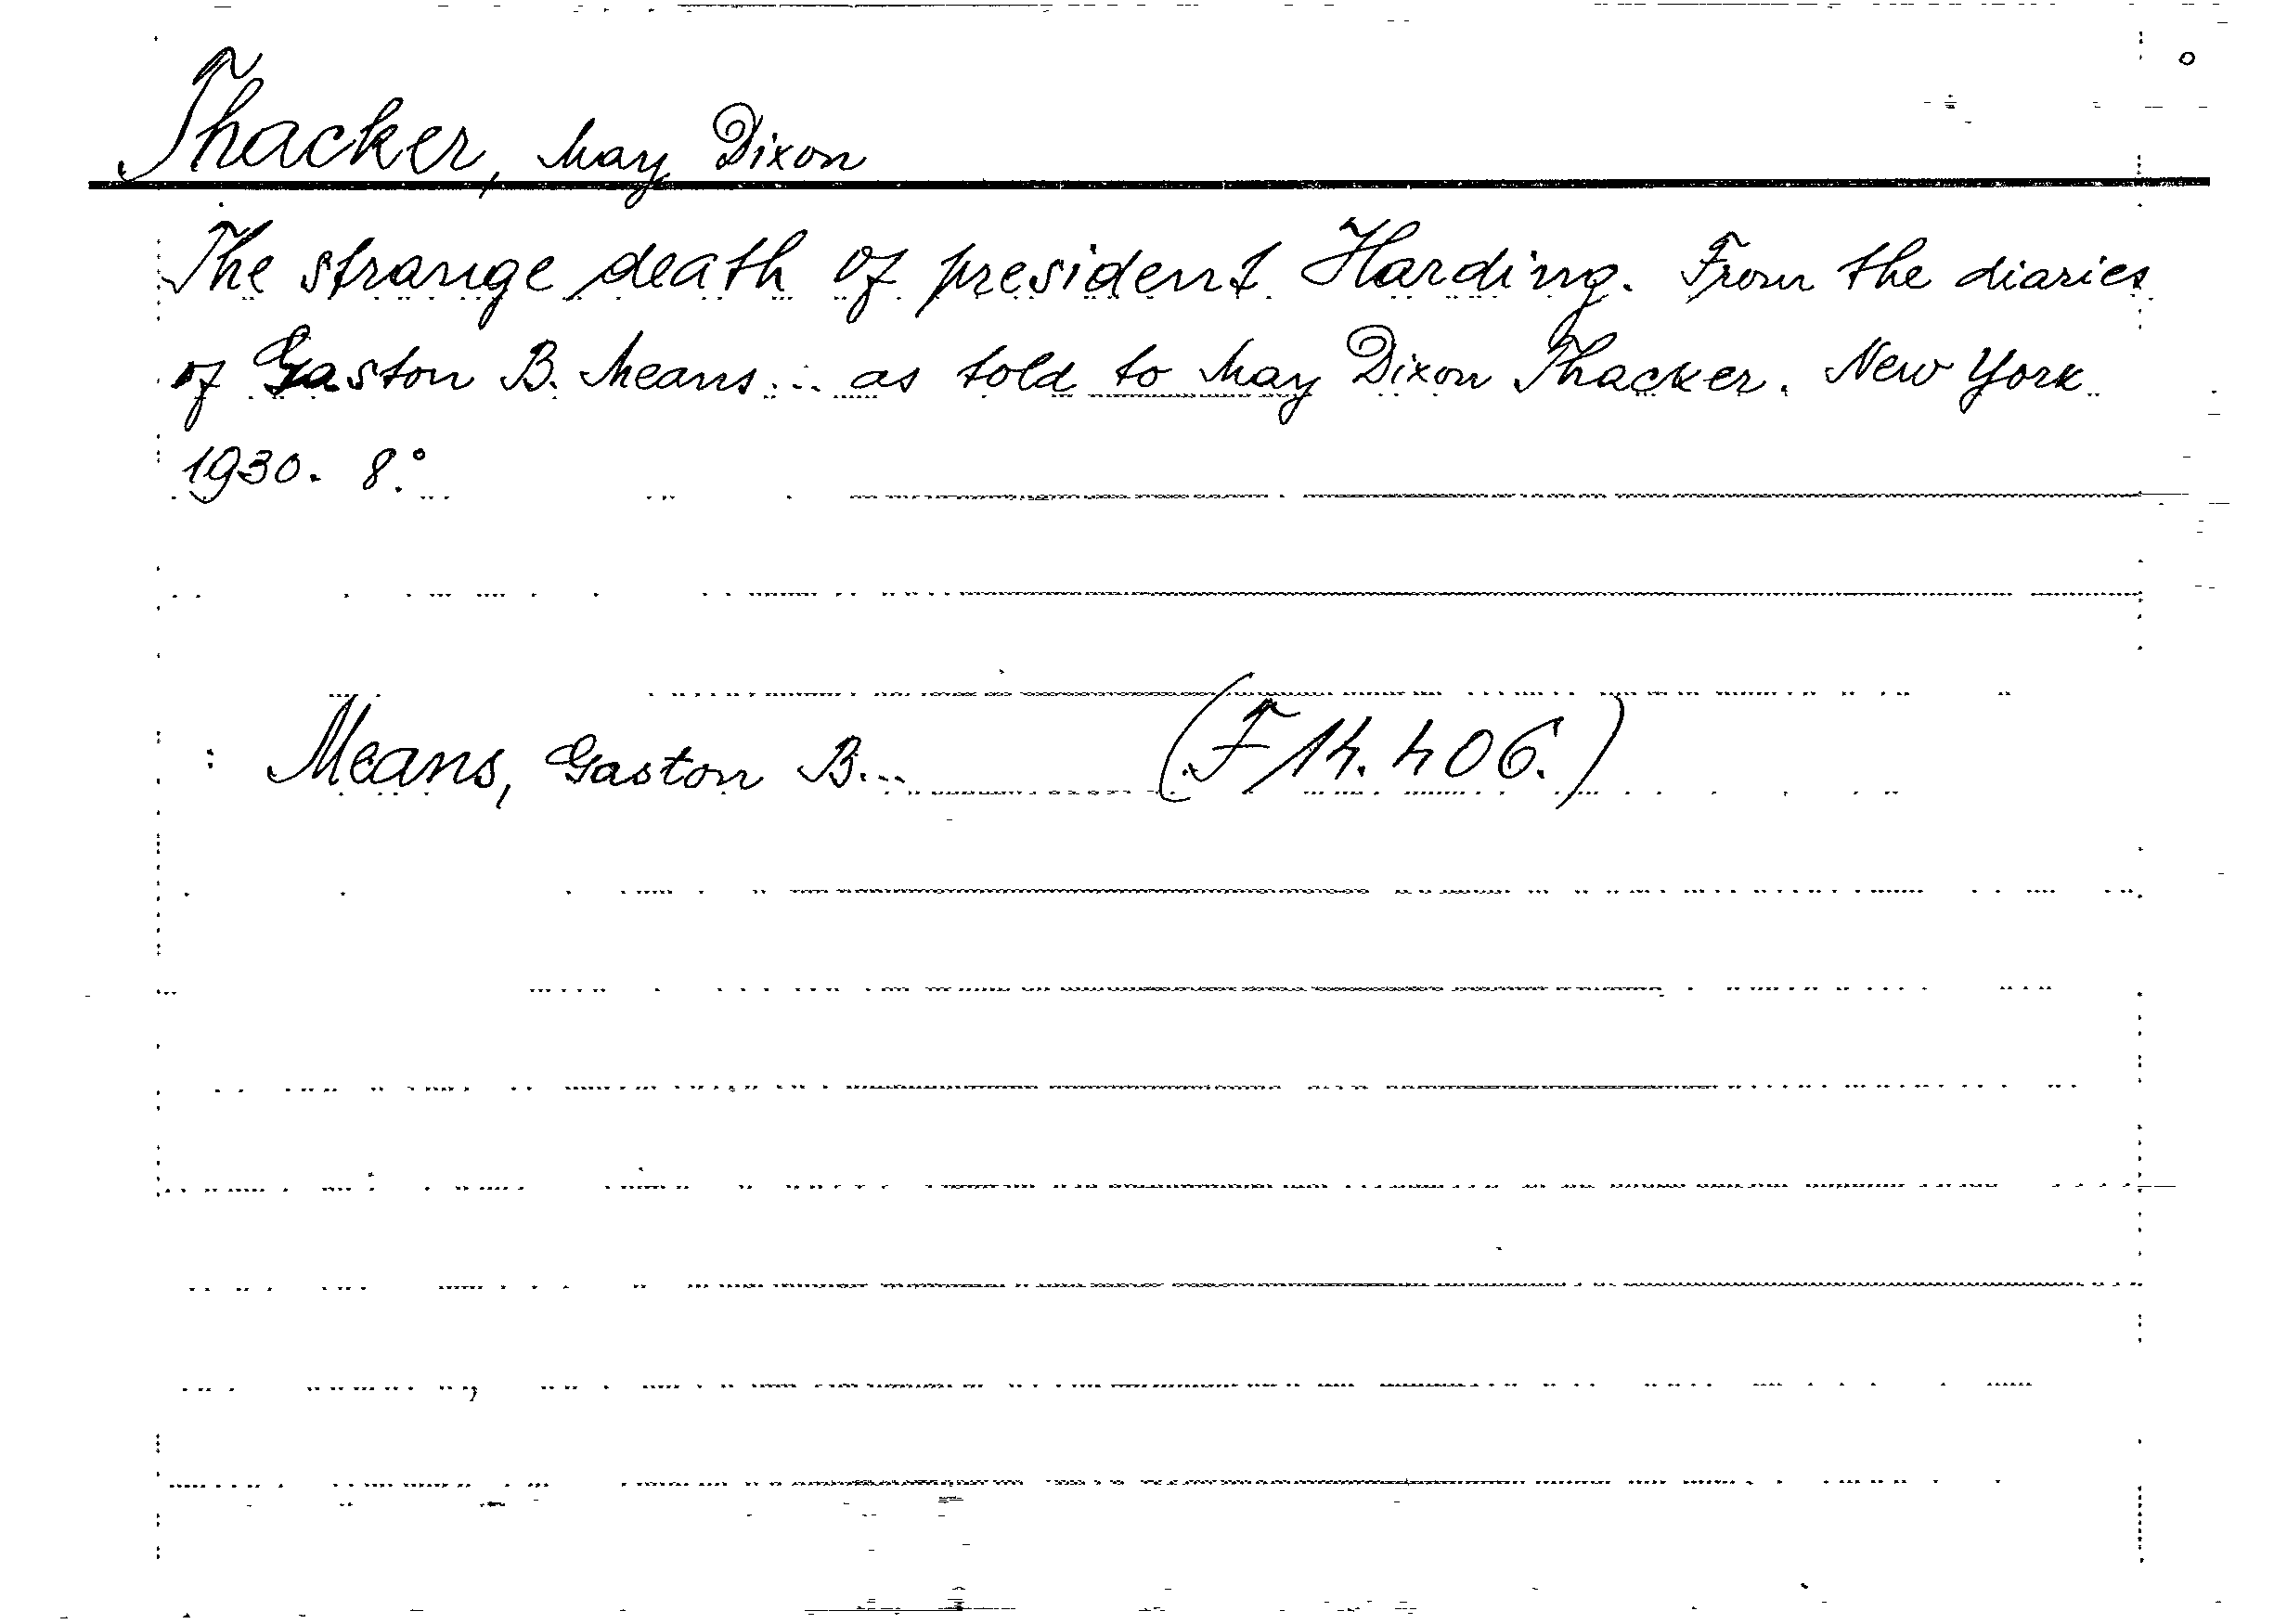 Thacker, May Dixon
The strange death of president Harding. From the diaries
of Gaston B. Means... as told to May Dixon Thacker. New York
1930. 8°.
: Means, Gaston B... (F 14.406.)